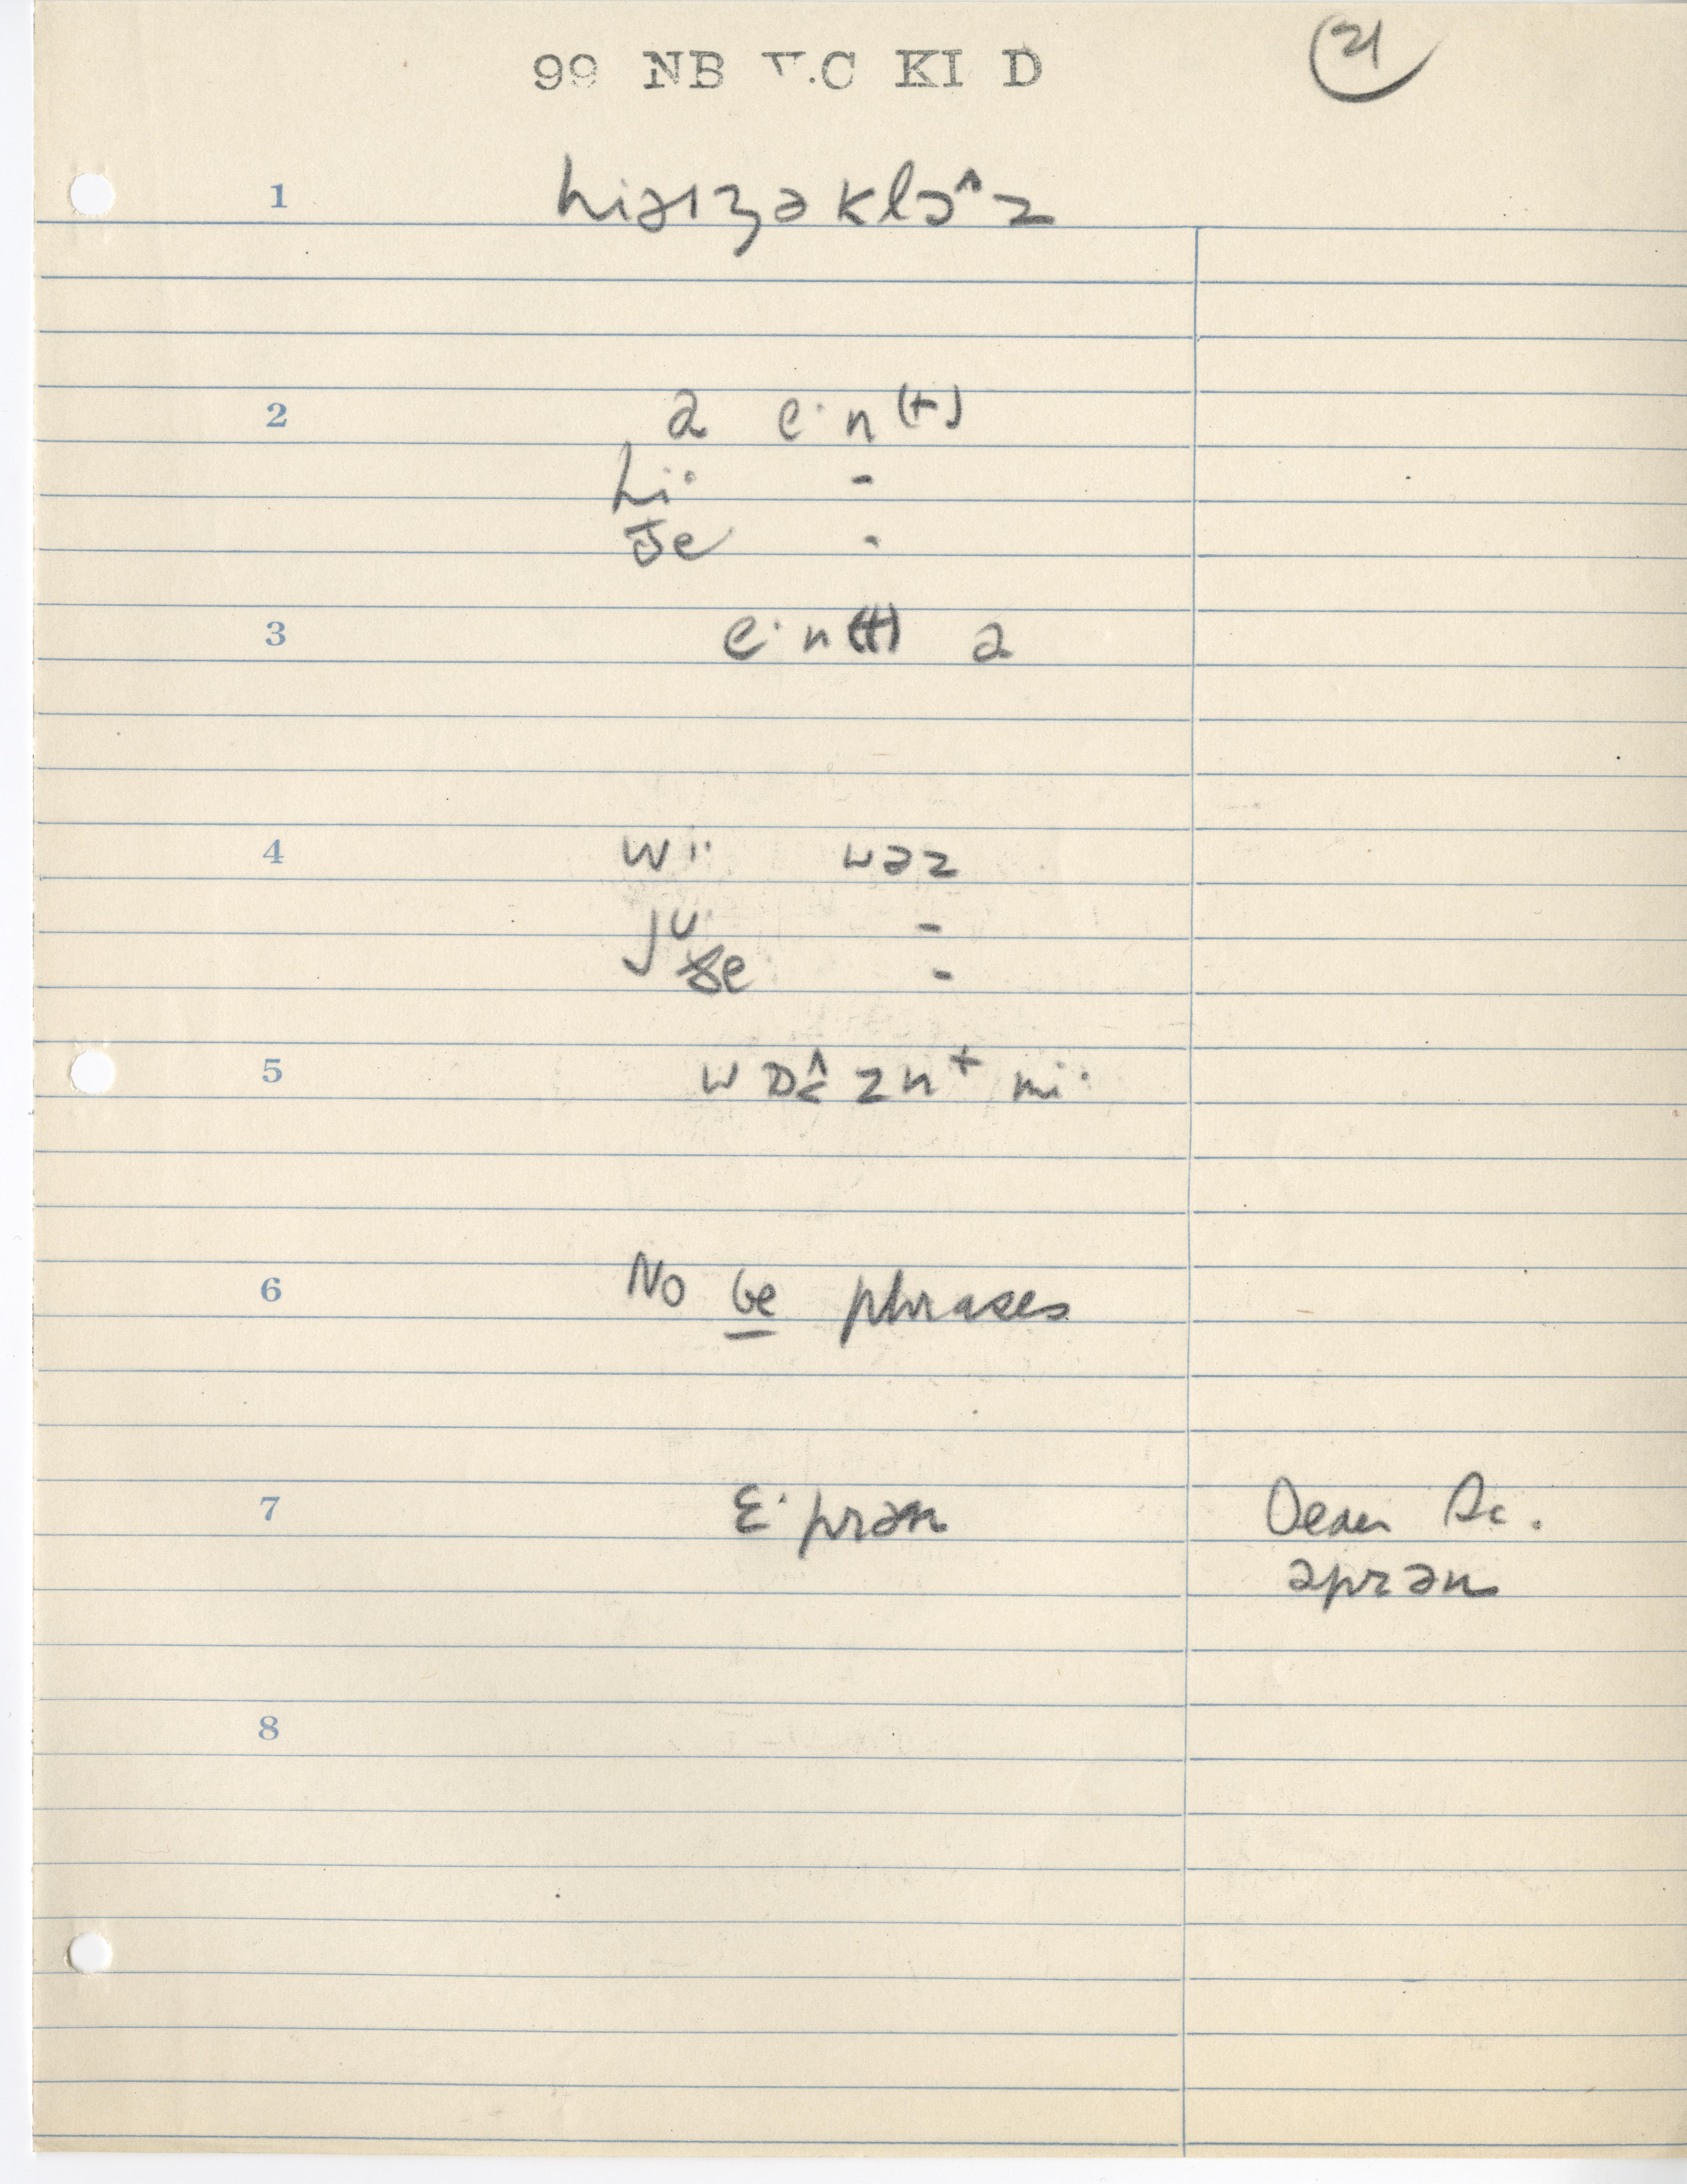 99 NB V.C KI D
21
1 hiəɹʒəklɔ^z
2 a e·n(t)
hi· -
ðe -
3 e·n(t) a
4 wi· wəz
ju· -
ðe -
5 wɒ^znt mi·
6 No be phrases
7 ɛ·prən
əprən
8